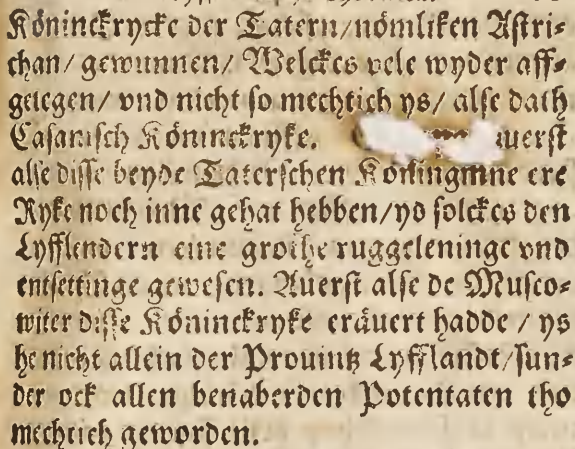 Köninckrycke der Tatern/nömliken Astri-
chan/ gewunnen/ Welckes vele wyder aff-
gelegen/ vnd nicht so mechtich ys/ alse dath
Casanisch Köninckryke. auerst
alse disse beyde Taterschen Köninginne ere
Ryke noch inne gehat hebben/ys solckes den
Lyfflendern eine grothe ruggeleninge vnd
entsettinge gewesen. Auerst alse de Musco-
witer disse Köninckryke eräuert hadde / ys
he nicht allein der Prouintz Lyfflandt/sun-
der ock allen benaberden Potentaten tho
mechtich geworden.